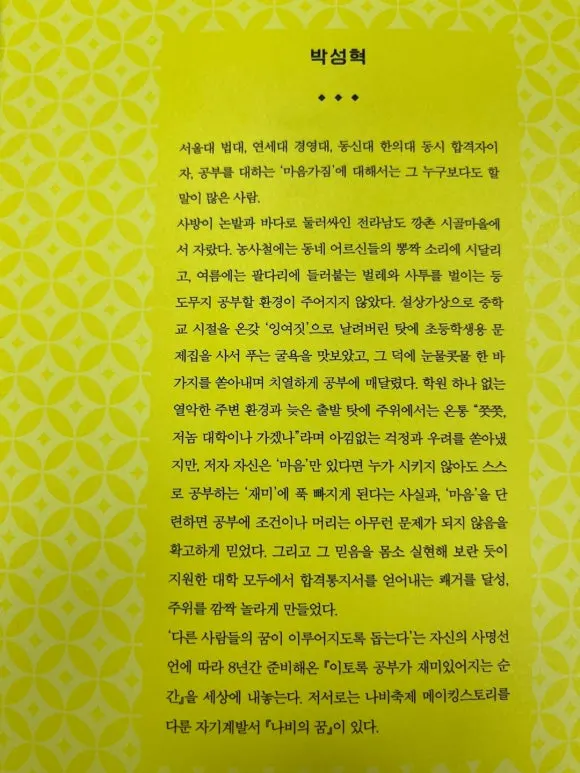 박성혁
◆ ◆ ◆
서울대 법대, 연세대 경영대, 동신대 한의대 동시 합격자이
자, 공부를 대하는 ‘마음가짐’에 대해서는 그 누구보다도 할
말이 많은 사람.
사방이 논밭과 바다로 둘러싸인 전라남도 깡촌 시골마을에
서 자랐다. 농사철에는 동네 어르신들의 뽕짝 소리에 시달리
고, 여름에는 팔다리에 들러붙는 벌레와 사투를 벌이는 등
도무지 공부할 환경이 주어지지 않았다. 설상가상으로 중학
교 시절을 온갖 ‘잉여짓’으로 날려버린 탓에 초등학생용 문
제집을 사서 푸는 굴욕을 맛보았고, 그 덕에 눈물콧물 한 바
가지를 쏟아내며 치열하게 공부에 매달렸다. 학원 하나 없는
열악한 주변 환경과 늦은 출발 탓에 주위에서는 온통 “쯧쯧,
저놈 대학이나 가겠나”라며 아낌없는 걱정과 우려를 쏟아냈
지만, 저자 자신은 ‘마음’만 있다면 누가 시키지 않아도 스스
로 공부하는 ‘재미’에 푹 빠지게 된다는 사실과, ‘마음’을 단
련하면 공부에 조건이나 머리는 아무런 문제가 되지 않음을
확고하게 믿었다. 그리고 그 믿음을 몸소 실현해 보란 듯이
지원한 대학 모두에서 합격통지서를 얻어내는 쾌거를 달성,
주위를 깜짝 놀라게 만들었다.
‘다른 사람들의 꿈이 이루어지도록 돕는다’는 자신의 사명선
언에 따라 8년간 준비해온 『이토록 공부가 재미있어지는 순
간』을 세상에 내놓는다. 저서로는 나비축제 메이킹스토리를
다룬 자기계발서 『나비의 꿈』이 있다.